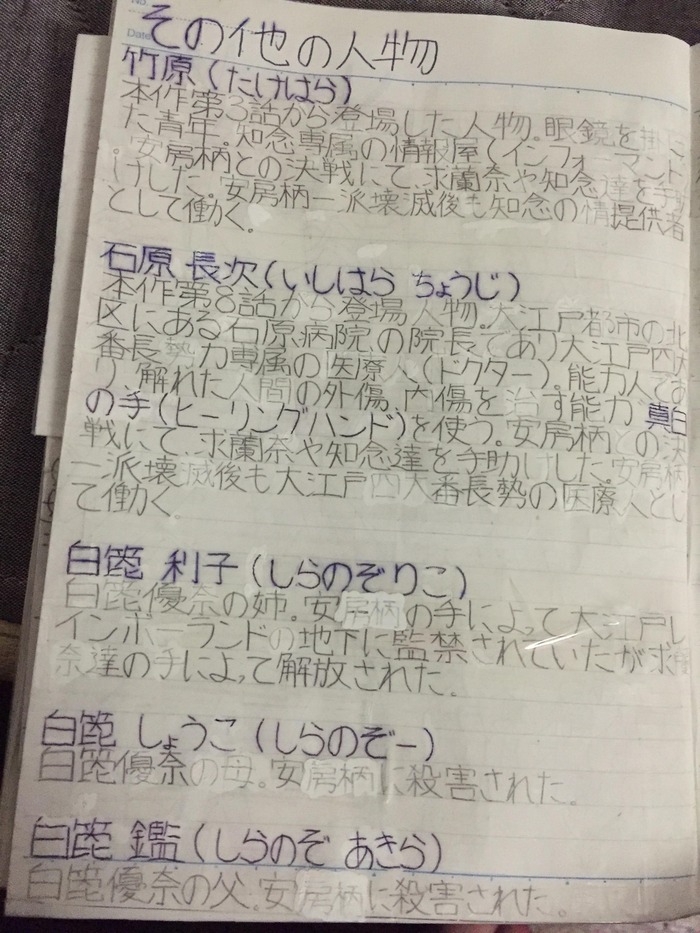 No.
Date
その他の人物
竹原(たけはら)
本作第3話から登場した人物。眼鏡を掛け
た青年。知念専属の情報屋(インフォーマント
。安房柄との決戦にて、求蘭奈や知念達を手助
けした。安房柄一派壊滅後も知念の情提供者
として働く。
石原 長次(いしはら ちょうじ)
本作第8話から登場人物。大江戸都市の北
区にある石原病院の院長であり大江戸四大
番長勢力専属の医療人(ドクター)。能力人であ
り、解れた人間の外傷、内傷を治す能力 真白
の手(ヒーリングハンド)を使う。安房柄との決
戦にて、求蘭奈や知念達を手助けした。安房柄
一派壊滅後も大江戸四大番長勢の医療人とし
て働く。
白箆 利子(しらのぞりこ)
白箆優奈の姉。安房柄の手によって大江戸レ
インボーランドの地下に監禁されていたが求
奈達の手によって解放された。
白箆 しょうこ(しらのぞー)
白箆優奈の母。安房柄に殺害された。
白箆 鑑(しらのぞ あきら)
白箆優奈の父。安房柄に殺害された。